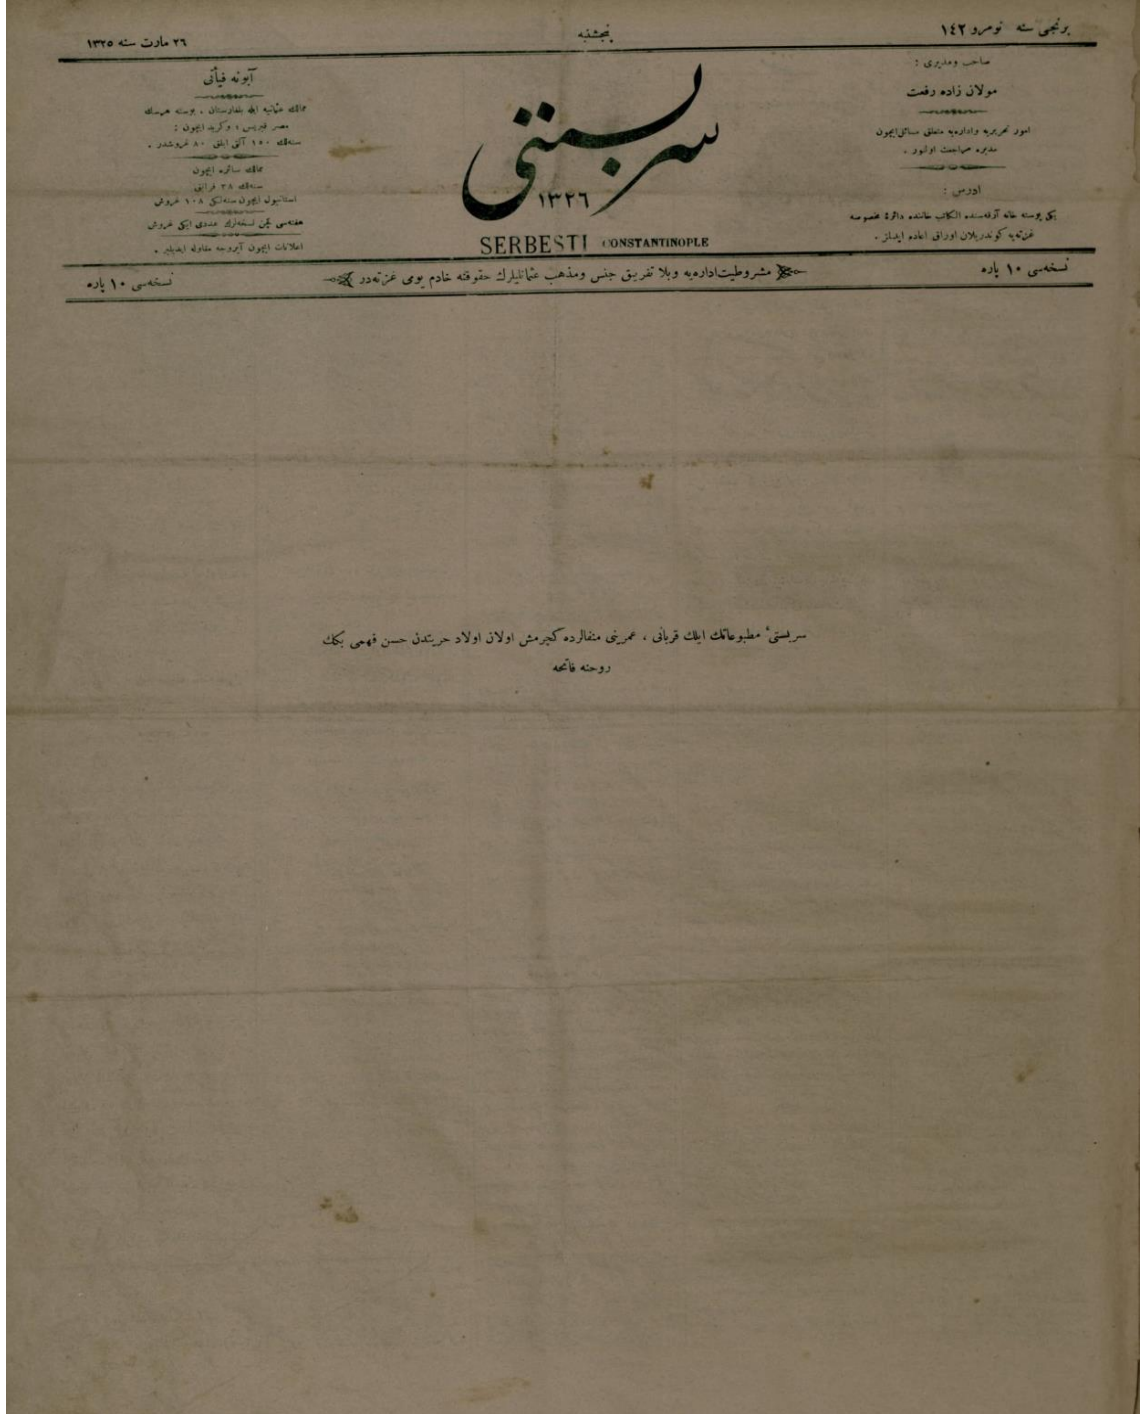 برنجی سنه نومرو ١٤٢
پنجشنبه
٢٦ مارت سنه ١٣٢٥
صاحب ومدیری :
مولان زاده رفعت
امور تحریریه واداره‌یه متعلق مسائل ایچون
مدیره مراجعت اولنور .
ادرس :
یکی پوسته خانه آرقه‌سنده الکاتب خاننده دائرهٔ مخصوصه
غزته‌یه کوندریلان اوراق اعاده ایدلز .
سربستی
١٣٢٦
SERBESTI CONSTANTINOPLE
آبونه فیأتی
ممالك عثمانیه ایله بلغارستان ، بوسنه هرسك
مصر قبریس ، وكرید ایچون :
سنه‌لك ١٥٠ آلتی ایلق ٨٠ غروشدر .
ممالك سائره ایچون
سنه‌لك ٣٨ فرانق
استانبول ایچون سنه‌لكی ١٠٨ غروش
هفته‌سی کچن نسخه‌لرك عددی ایکی غروش
اعلانات ایچون آیروجه مقاوله ایدیلیر .
نسخه‌سی ١٠ پاره
مشروطیت اداره‌یه وبلا تفریق جنس ومذهب عثمانلیلرك حقوقنه خادم یومی غزته‌در
نسخه‌سی ١٠ پاره
سربستیٔ مطبوعاتك ایلك قربانی ، عمرینی منفالرده کچرمش اولان اولاد حریتدن حسن فهمی بکك
روحنه فاتحه